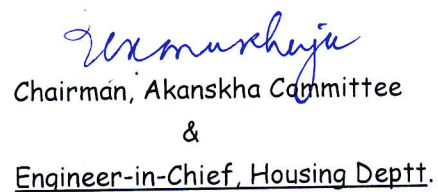 Chairman, Akanskha Committee
&
Engineer-in-Chief, Housing Deptt.